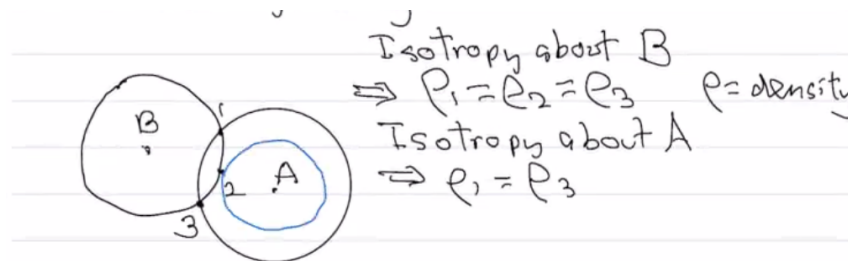 Isotropy about B
⇒ ρ₁ = ρ₂ = ρ₃   ρ = density
Isotropy about A
⇒ ρ₁ = ρ₃
B
1
A
2
3